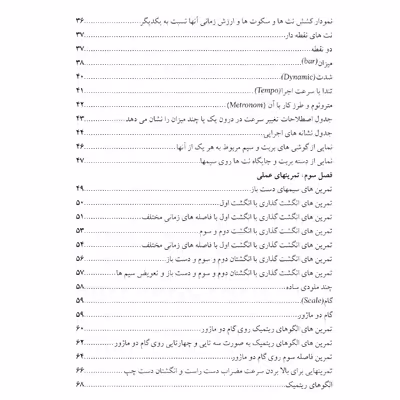 نمودار کشش نت ها و سکوت ها و ارزش زمانی آنها نسبت به یکدیگر ........ ۳۶
نت های نقطه دار ........ ۳۷
دو نقطه ........ ۳۷
میزان (bar) ........ ۳۸
شدت (Dynamic) ........ ۴۰
تندا یا سرعت اجرا (Tempo) ........ ۴۱
مترونوم و طرز کار با آن (Metronom) ........ ۴۲
جدول اصطلاحات تغییر سرعت در درون یک یا چند میزان را نشان می دهد ........ ۴۳
جدول نشانه های اجرایی ........ ۴۴
نمایی از گوشی های بربت و سیم مربوط به هر یک از آنها ........ ۴۶
نمایی از دسته بربت و جایگاه نت ها روی سیمها ........ ۴۷
فصل سوم، تمرینهای عملی
تمرین های سیمهای دست باز ........ ۴۹
تمرین های انگشت گذاری با انگشت اول ........ ۵۰
تمرین های انگشت گذاری با انگشت اول با فاصله های زمانی مختلف ........ ۵۱
تمرین های انگشت گذاری با انگشت دوم و سوم ........ ۵۳
تمرین های انگشت گذاری با انگشت اول با فاصله های زمانی مختلف ........ ۵۴
تمرین های انگشت گذاری با انگشتان دوم و سوم و دست باز ........ ۵۶
تمرین های انگشت گذاری با انگشتان دوم و سوم و دست باز و تعویض سیم ها ........ ۵۷
چند ملودی ساده ........ ۵۸
گام (Scale) ........ ۵۹
گام دو ماژور ........ ۵۹
تمرین های الگوهای ریتمیک روی گام دو ماژور ........ ۶۰
تمرین های الگوهای ریتمیک به صورت سه تایی و چهارتایی روی گام دو ماژور ........ ۶۲
تمرین فاصله سوم روی گام دو ماژور ........ ۶۴
تمرینهایی برای بالا بردن سرعت مضراب دست راست و انگشتان دست چپ ........ ۶۶
الگوهای ریتمیک ........ ۶۸